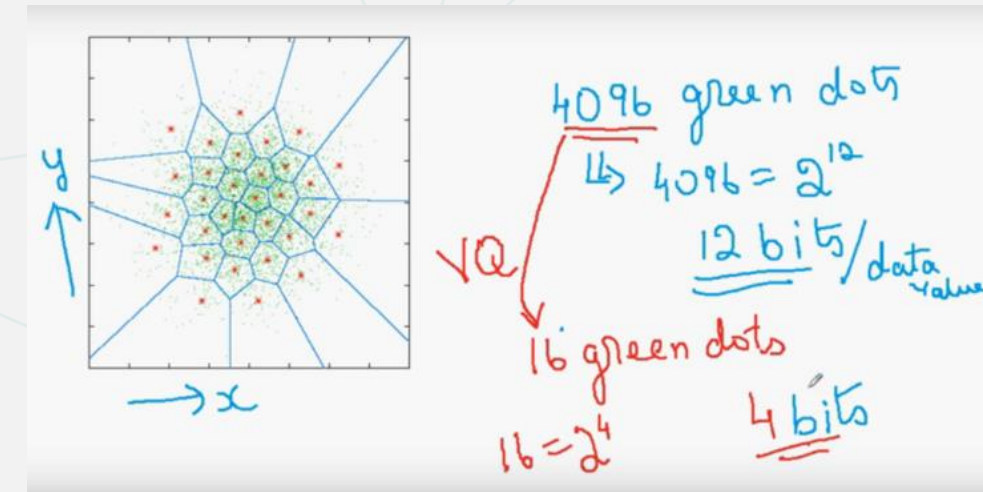 y
x
4096 green dots
↳ 4096 = 2¹²
12 bits/data value
VQ
16 green dots
16 = 2⁴
4 bits